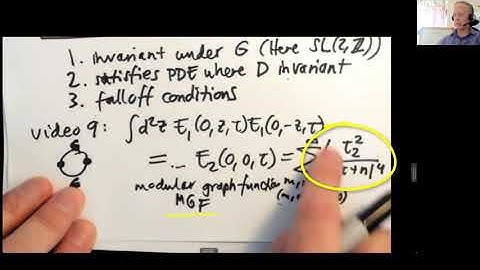 1. invariant under G (Here SL(2,ℤ))
2. satisfies PDE where D invariant
3. falloff conditions
video 9: ∫d²z E₁(0,z,τ)E₁(0,-z,τ)
= … E₂(0,0,τ) = Σ' τ₂²
τ+n|⁴
modular graph function m,
MGF (m,
G
G